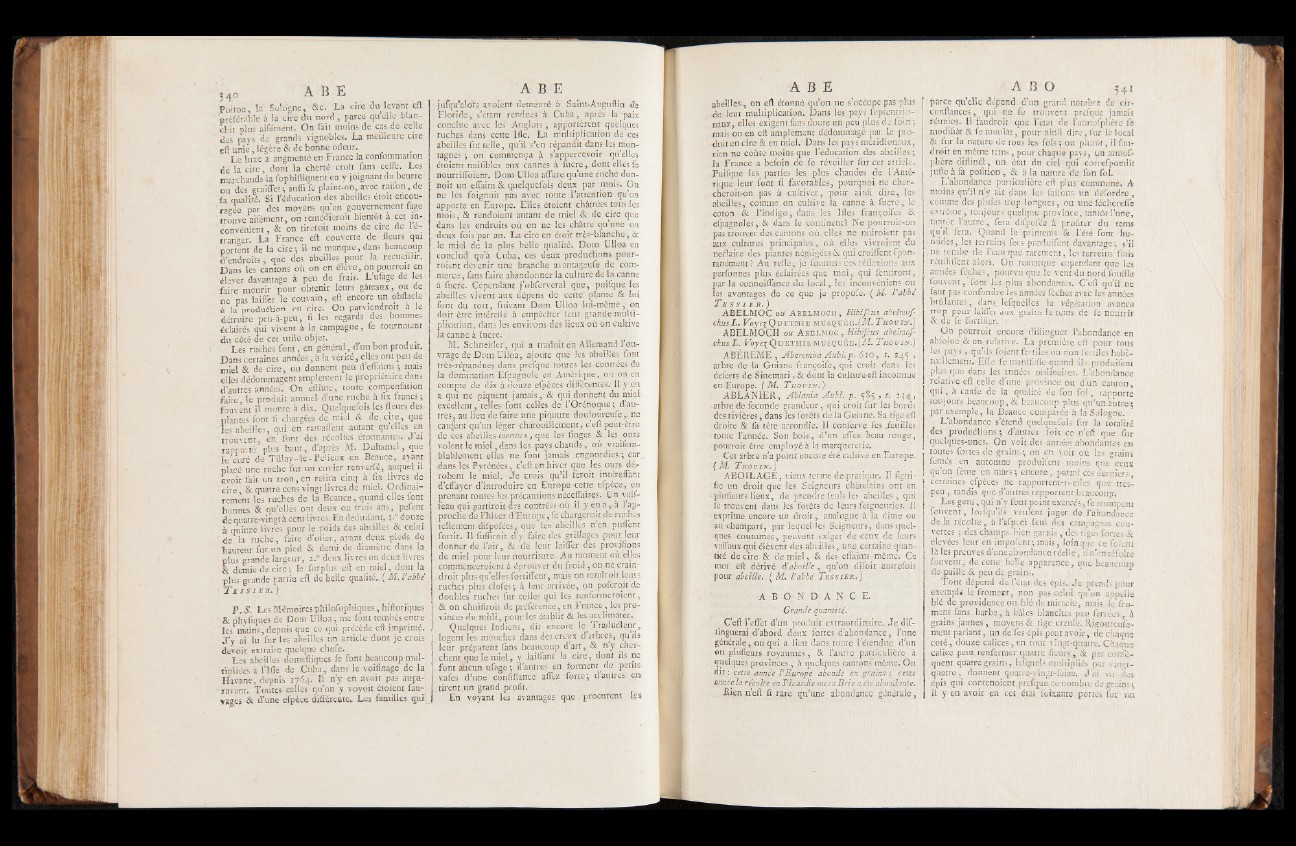 340 A B E
Poitou, la Sologne, &c. La cire du levant est
préférable à la cire du nord, parce qu'elle blan-
chit plus aisément. On fait moins de cas de celle
des pays de grands vignobles. La meilleure cire
est unie, légère & de bonne odeur.
Le luxe a augmenté en France la consommation
de la cire, dont la cherté croît sans cesse. Les
marchands la sophistiquent en y joignant du beurre
ou des graisses; aussi se plaint-on, avec raison, de
sa qualité. Si l'éducation des abeilles étoit encou-
ragée par des moyens qu'un gouvernement sage
trouve aisément, on remédieroit bientôt à cet in-
convénient, & on tireroit moins de cire de l'é-
tranger. La France est couverte de fleurs qui
portent de la cire; il ne manque, dans beaucoup
d'endroits, que des abeilles pour la recueillir.
Dans les cantons où on en élève, on pourroit en
élever davantage à peu de frais. L'usage de les
faire mourir pour obtenir leurs gâteaux, ou de
ne pas laisser le couvain, est encore un obstacle
à la production en cire. On parviendroit à le
détruire peu-à-peu, si les regards des hommes
éclairés qui vivent à la campagne, se tournoient
du côté de cet utile objet.
Les ruches sont, en général, d'un bon produit.
Dans certaines années, à la vérité, elles ont peu de
miel & de cire, ou donnent peu d'essaims; mais
elles dédommagent amplement le propriétaire dans
d'autres années. On estime, toute compensation
faite, le produit annuel d'une ruche à six francs;
souvent il monte à dix. Quelquefois les fleurs des
plantes sont si chargées de miel & de cire, que
les abeilles, qui en ramassent autant qu'elles en
trouvent, en font des récoltes étonnantes. J'ai
rapporté plus haut, d'après M. Duhamel, que
le curé de Tillay-le-Peleux en Beauce, ayant
placé une ruche sur un cuvier renversé, auquel il
avoit fait un trou, en retira cinq à six livres de
cire, & quatre cens vingt livres de miel. Ordinai-
rement les ruches de la Beauce, quand elles sont
bonnes & qu'elles ont deux ou trois ans, pèsent
de quatre-vingt à cent livres. En déduisant, 1.° douze
à quinze livres pour le poids des abeilles & celui
de la ruche, faite d'osier, ayant deux pieds de
hauteur sur un pied & demi de diamètre dans la
plus grande largeur, 2.° deux livres ou deux livres
& demie de cire; le surplus est en miel, dont la
plus grande partie est de belle qualité. ( M. l'abbé
TESSIER. )
P. S. Les Mémoires philosophiques, historiques
& physiques de Dom Ulloa, me sont tombés entre
les mains, depuis que ce qui précède est imprimé.
J'y ai lu sur les abeilles un article dont je crois
devoir extraire quelque chose.
Les abeilles domestiques se sont beaucoup mul-
tipliées à l'Isle de Cuba, dans le voisinage de la
Havane, depuis 1764. Il n'y en avoit pas aupa-
ravant. Toutes celles qu'on y voyoit étoient sau-
vages & d'une espèce différente. Les familles qui
A B E
jusqu'alors avoient demeuré à Saint-Augustin de
Floride, s'étant rendues à Cuba, après la paix
conclue avec les Anglois, apportèrent quelques
ruches dans cette Isle. La multiplication de ces
abeilles fut telle, qu'il s'en répandit dans les mon-
tagnes; on commença à s'appercevoir qu'elles
étoient nuisibles aux cannes à sucre, dont elles se
nourrissoient. Dom Ulloa assure qu'une ruche don-
noit un essaim & quelquefois deux par mois. On
ne les soignoit pas avec toute l'attention qu'on
apporte en Europe. Elles étoient châtrées tous les
mois, & rendoient autant de miel & de cire que
dans les endroits où on ne les châtre qu'une ou
deux fois par an. La cire en étoit très-blanche, &
le miel de la plus belle qualité. Dom Ulloa en
conclud qu'à Cuba, ces deux productions pour-
roient devenir une branche avantageuse de com-
merce, sans faire abandonner la culture de la canne
à sucre. Cependant j'observerai que, puisque les
abeilles vivent aux dépens de cette plante & lui
font du tort, suivant Dom Ulloa lui-même, on
doit être intéressé à empêcher leur grande multi-
plication, dans les environs des lieux où on cultive
la canne à sucre.
M. Schneider, qui a traduit en Allemand l'ou-
vrage de Dom Ulloa, ajoute que les abeilles sont
très-répandues dans presque toutes les contrées de
la domination Espagnole en Amérique, où on en
compte de dix à douze espèces différentes. Il y en
a qui ne piquent jamais, & qui donnent du miel
excellent, telles sont celles de l'Orénoque; d'au-
tres, au lieu de faire une piquure douloureuse, ne
causent qu'un léger chatouillement, c'est peut-être
de ces abeilles que les singes & les ours
volent le miel, dans les pays chauds, où vraisem-
blablement elles ne sont jamais engourdies; car
dans les Pyrénées, c'est en hiver que les ours dé-
robent le miel. Je crois qu'il seroit intéressant
d'essayer d'introduire en Europe cette espèce, en
prenant toutes les précautions nécessaires. Un vais-
seau qui partiroit des contrées où il y en a, à l'ap-
proche de l'hiver d'Europe, se chargeroit de ruches
tellement disposées, que les abeilles n'en pussent
sortir. Il suffiroit d'y faire des grillages pour leur
donner de l'air, & de leur laisser des provisions
de miel pour leur nourriture. Au moment où elles
commenceroient à éprouver du froid, on ne crain-
droit plus qu'elles sortissent, mais on rendroit leurs
ruches plus closes; à leur arrivée, on poseroit de
doubles ruches sur celles qui les renfermeroient,
& on choisiroit de préférence, en France, les pro-
vinces du midi, pour les établir & les acclimater.
Quelques Indiens, dit encore le Traducteur,
logent les mouches dans des creux d'arbres, qu'ils
leur préparent sans beaucoup d'art, & n'y cher-
chent que le miel, y laissant la cire, dont ils ne
font aucun usage; d'autres en forment de petits
vases d'une consistance assez forte; d'autres en
tirent un grand profit.
En voyant les avantages que procurent les
A B E
abeilles, on est étonné qu'on ne s'occupe pas plus
de leur multiplication. Dans les pays septentrio-
naux, elles exigent sans doute un peu plus de soin;
mais on en est amplement dédommagé par le pro-
duit en cire & en miel. Dans les pays méridionaux,
rien ne coûte moins que l'éducation des abeilles;
la France a besoin de se réveiller sur cet article.
Puisque les parties les plus chaudes de l'Amé-
rique leur sont si favorables, pourquoi ne cher-
cheroit-on pas à cultiver, pour ainsi dire, les
abeilles, comme on cultive la canne à sucre, le
coton & l'indigo, dans les Isles françoises &
espagnoles, & dans le continent? Ne pourroit-on
pas trouver des cantons où elles ne nuiroient pas
aux cultures principales, où elles vivroient du
nectaire des plantes négligées & qui croissent spon-
tanément? Au reste, je soumets ces réflexions aux
personnes plus éclairées que moi, qui sentiront,
par la connoissance du local, les inconvéniens ou
les avantages de ce que je propose. ( M. l'abbé
TESSIER. )
ABELMOC ou ABELMOCH, Hibiscus abelmos-
chus L. Voyez QUETMIE MUSQUÉE. (M. THOUIN.)
ABELMOCH ou ABELMOC, Hibiscus abelmos-
chus L. Voyez QUETMIE MUSQUÉE. (M. THOUIN.)
ABÉRÈME, Aberemoa Aubl. p. 610, t. 245,
arbre de la Guiane françoise, qui croît dans les
déserts de Sinemari, & dont la culture est inconnue
en Europe. ( M. THOUIN. )
ABLANIER, Ablania Aubl. p. 585, t. 234,
arbre de seconde grandeur, qui croît sur les bords
des rivières, dans les forêts de la Guiane. Sa tige est
droite & sa tête arrondie. Il conserve ses feuilles
toute l'année. Son bois, d'un assez beau rouge,
pourroit être employé à la marqueterie.
Cet arbre n'a point encore été cultivé en Europe.
( M. THOUIN. )
ABOILAGE, vieux terme de pratique. Il signi-
fie un droit que les Seigneurs châtelains ont en
plusieurs lieux, de prendre seuls les abeilles, qui
se trouvent dans les forêts de leurs seigneuries. Il
exprime encore un droit, analogue à la dîme ou
au champart, par lequel les Seigneurs, dans quel-
ques coutumes, peuvent exiger de ceux de leurs
vassaux qui élèvent des abeilles, une certaine quan-
tité de cire & de miel, & des essaims même. Ce
mot est dérivé d'aboille, qu'on disoit autrefois
pour abeille. ( M. l'abbé TESSIER. )
A B O N D A N C E.
Grande quantité.
C'est l'effet d'un produit extraordinaire. Je dis-
tinguerai d'abord deux sortes d'abondance, l'une
générale, ou qui a lieu dans toute l'étendue d'un
ou plusieurs royaumes, & l'autre particulière à
quelques provinces, à quelques cantons même. On
dit: cette année l'Europe abonde en grains; cette
année la récolte en Picardie ou en Brie a été abondante.
Rien n'est si rare qu'une abondance générale,
A B O 341
parce qu'elle dépend d'un grand nombre de cir-
constances, qui ne se trouvent presque jamais
réunies. Il faudroit que l'état de l'atmosphère se
modifiât & se moulât, pour ainsi dire, sur le local
& sur la nature de tous les sols; ou plutôt, il fau-
droit en même tems, pour chaque pays, un atmos-
phère distinct, un état du ciel qui correspondît
juste à sa position, & à la nature de son sol.
L'abondance particulière est plus commune. A
moins qu'il n'y ait dans les saisons un désordre,
comme des pluies trop longues, ou une sécheresse
extrême, toujours quelque province, tantôt l'une,
tantôt l'autre, sera disposée à profiter du tems
qu'il fera. Quand le printems & l'été sont hu-
mides, les terreins secs produisent davantage; s'il
ne tombe de l'eau que rarement, les terreins frais
réussissent alors. On remarque cependant que les
années sèches, pourvu que le vent du nord souffle
souvent, sont les plus abondantes. C'est qu'il ne
faut pas confondre les années sèches avec les années
brûlantes, dans lesquelles la végétation avance
trop pour laisser aux grains le tems de se nourrir
& de se fortifier.
On pourroit encore distinguer l'abondance en
absolue & en relative. La première est pour tous
les pays, qu'ils soient fertiles ou non fertiles habi-
tuellement. Elle se manifeste quand ils produisent
plus que dans les années ordinaires. L'abondance
relative est celle d'une province ou d'un canton,
qui, à cause de la qualité de son sol, rapporte
toujours beaucoup, & beaucoup plus qu'un autre;
par exemple, la Beauce comparée à la Sologne.
L'abondance s'étend quelquefois sur la totalité
des productions; d'autres fois ce n'est que sur
quelques-unes. On voit des années abondantes en
toutes sortes de grains; on en voit où les grains
semés en automne produisent moins que ceux
qu'on sème en mars; encore, parmi ces derniers,
certaines espèces ne rapportent-elles que très-
peu, tandis que d'autres rapportent beaucoup.
Les gens, qui n'y sont point exercés, se trompent
souvent, lorsqu'ils veulent juger de l'abondance
de la récolte, à l'aspect seul des campagnes cou-
vertes; des champs bien garnis, des tiges fortes &
élevées leur en imposent; mais, loin que ce soient
là les preuves d'une abondance réelle, il n'en résulte
souvent, de cette belle apparence, que beaucoup
de paille & peu de grain.
Tout dépend de l'état des épis. Je prends pour
exemple le froment, non pas celui qu'on appelle
blé de providence ou blé de miracle, mais le fro-
ment sans barbe, à bâles blanches peu serrées, à
grains jaunes, moyens & tige creuse. Rigoureuse-
ment parlant, un de ses épis peut avoir, de chaque
côté, douze calices, en tout vingt-quatre. Chaque
calice peut renfermer quatre fleurs, & par consé-
quent quatre grains, lesquels multipliés par vingt-
quatre, donnent quatre-vingt-seize. J'ai vu des
épis qui contenoient presque ce nombre de grains;
il y en avoit en cet état soixante portés sur un